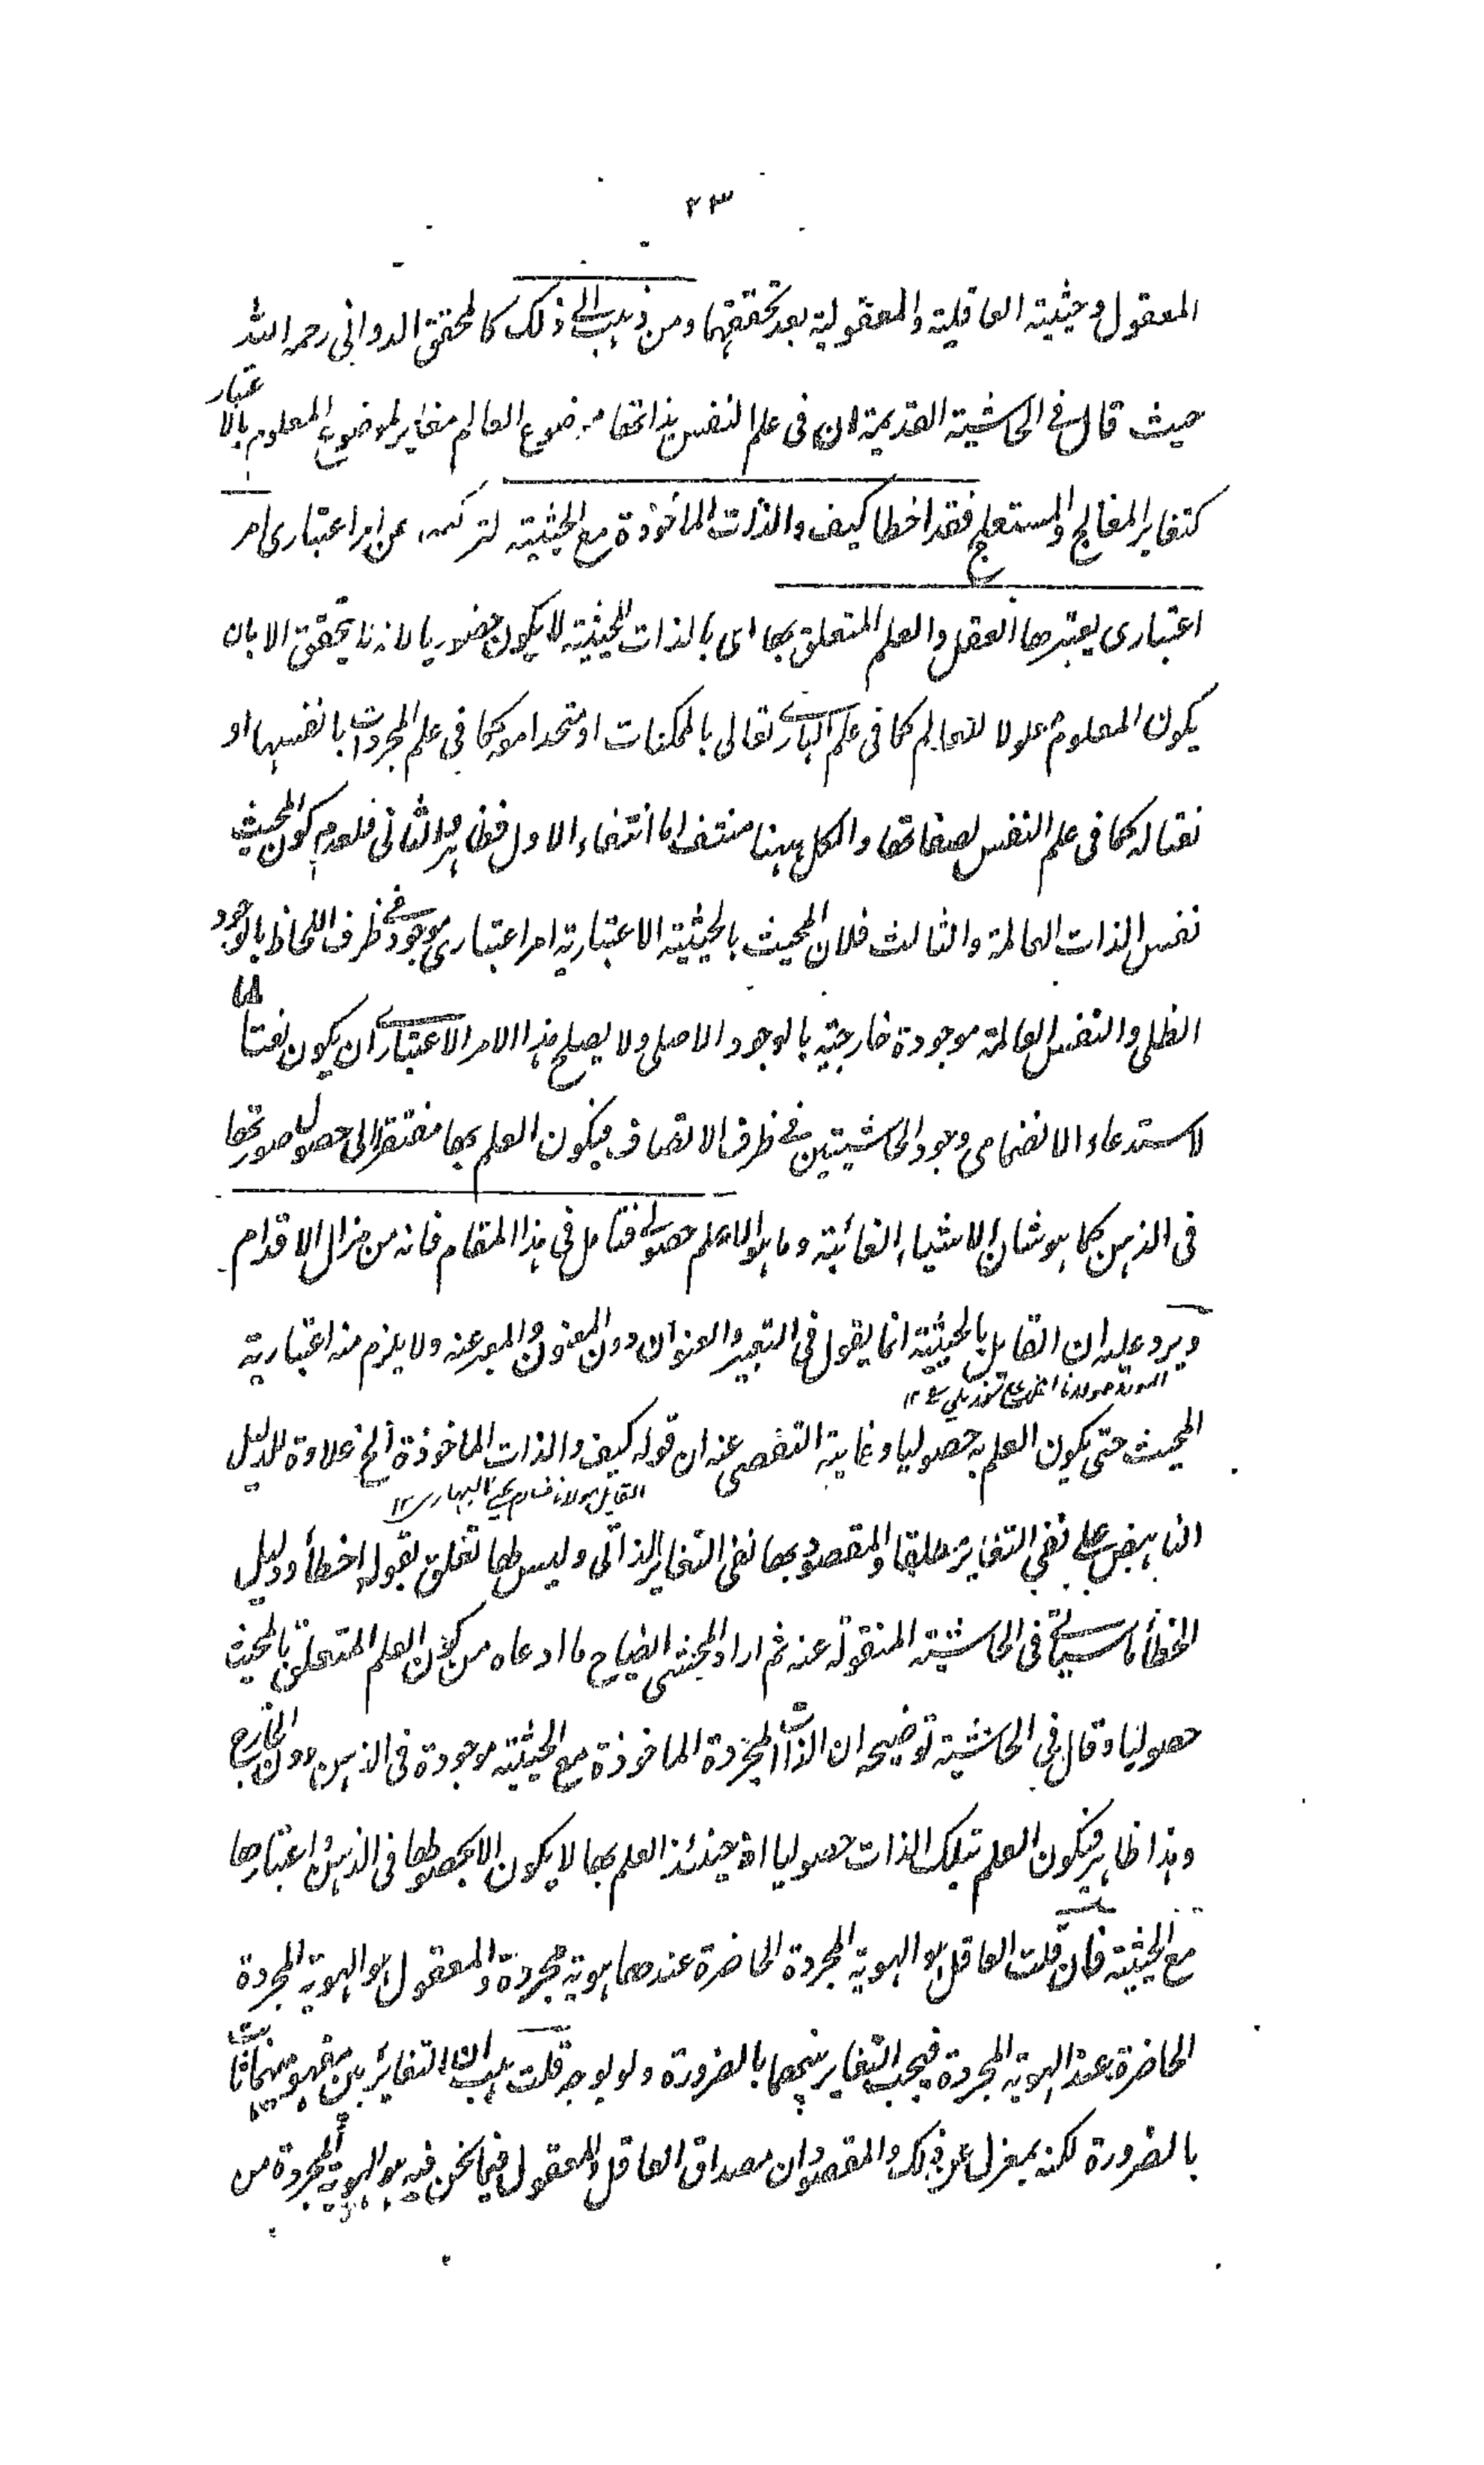 ٢٣
المعقول وحيثية العاقلية والمعقولية بعد تحققهما ومن ذهب الى ذلك كالمحقق الدوانى رحمه الله
حيث قال فى الحاشية القديمة ان فى علم النفس بذاتها موضوع العالم مغاير لموضوع المعلوم بالاعتبار
كتغاير المعالج والمستعلج فقد اخطأ كيف والذات المأخوذة مع الحيثية لتركبه عن امر اعتبارى امر
اعتبارى يعتبرها العقل والعلم المتعلق بها اى بالذات الحيثية لا يكون حضوريا لانه لا يتحقق الا بان
يكون المعلوم معلولا للعالم كما فى علم البارى تعالى بالممكنات او متحدا معه كما فى علم المجردات بانفسها او
نعتا له كما فى علم النفس لصفاتها والكل ههنا منتف اما انتفاء الاول فظاهر والثانى فلعدم كون المحيث
نفس الذات العالمة والثالث فلان المحيث بالحيثية الاعتبارية امر اعتبارى موجود فى ظرف اللحاظ بالوجود
الظلى والنفس العالمة موجودة خارجية بالوجود الاصلى ولا يصلح هذا الامر الاعتبارى ان يكون نعتا لها
لاستدعاء الانضمامى وجود الحاشيتين فى ظرف الاتصاف فيكون العلم بها مفتقرا الى حصول صورتها
فى الذهن كما هو شان الاشياء الغائبة وما هو الا علم حصولى فتامل فى هذا المقام فانه من مزال الاقدام
ويرد عليه ان القايل بالحيثية انما يقول فى التعبير والعنوان دون المعنون والمعبر عنه ولا يلزم منه اعتبارية
المورد مولانا ١٢
المحيث حتى يكون العلم به حصوليا وغاية التفصى عنه ان قوله كيف والذات الماخوذة الخ علاوة للدليل
القايل مولانا غلام يحيى البهارى ١٢
الناهض على نفى التغاير مطلقا والمقصود بها نفى التغاير الذاتى وليس لها تعلق بقوله اخطأ ودليل
الخطأ ما سيأتى فى الحاشية المنقولة عنه ثم اراد المحشى ايضاح ما ادعاه من كون العلم المتعلق بالمحيث
حصوليا وقال فى الحاشية توضيحه ان الذات المجردة الماخوذة مع الحيثية موجودة فى الذهن دون الخارج
وهذا ظاهر فيكون العلم بتلك الذات حصوليا اذ حينئذ العلم بها لا يكون الا بحصولها فى الذهن واعتبارها
مع الحيثية فان قلت العاقل هو الهوية المجردة الحاضرة عندها هوية مجردة والمعقول هو الهوية المجردة
الحاضرة عند الهوية المجردة فيجب التغاير بينهما بالضرورة ولو بوجه قلت هب ان التغائر بين مفهوميهما ثابت
بالضرورة لكنه بمعزل عن ذلك والمقصود ان مصداق العاقل والمعقول فيما نحن فيه هو الهوية المجردة من